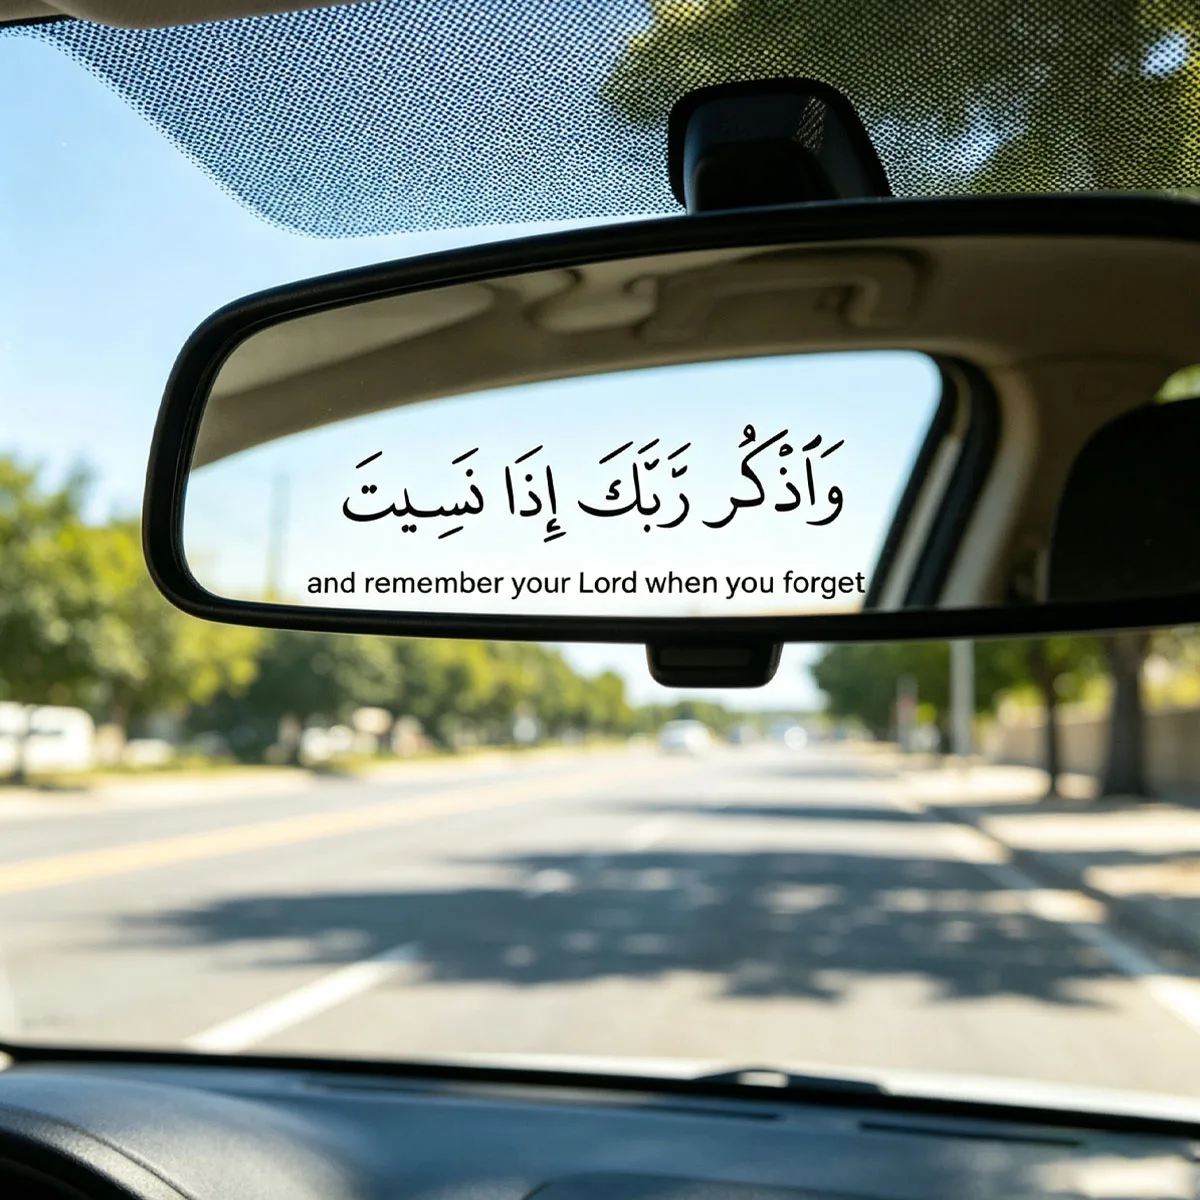 وَٱذْكُر رَّبَّكَ إِذَا نَسِيتَ
and remember your Lord when you forget